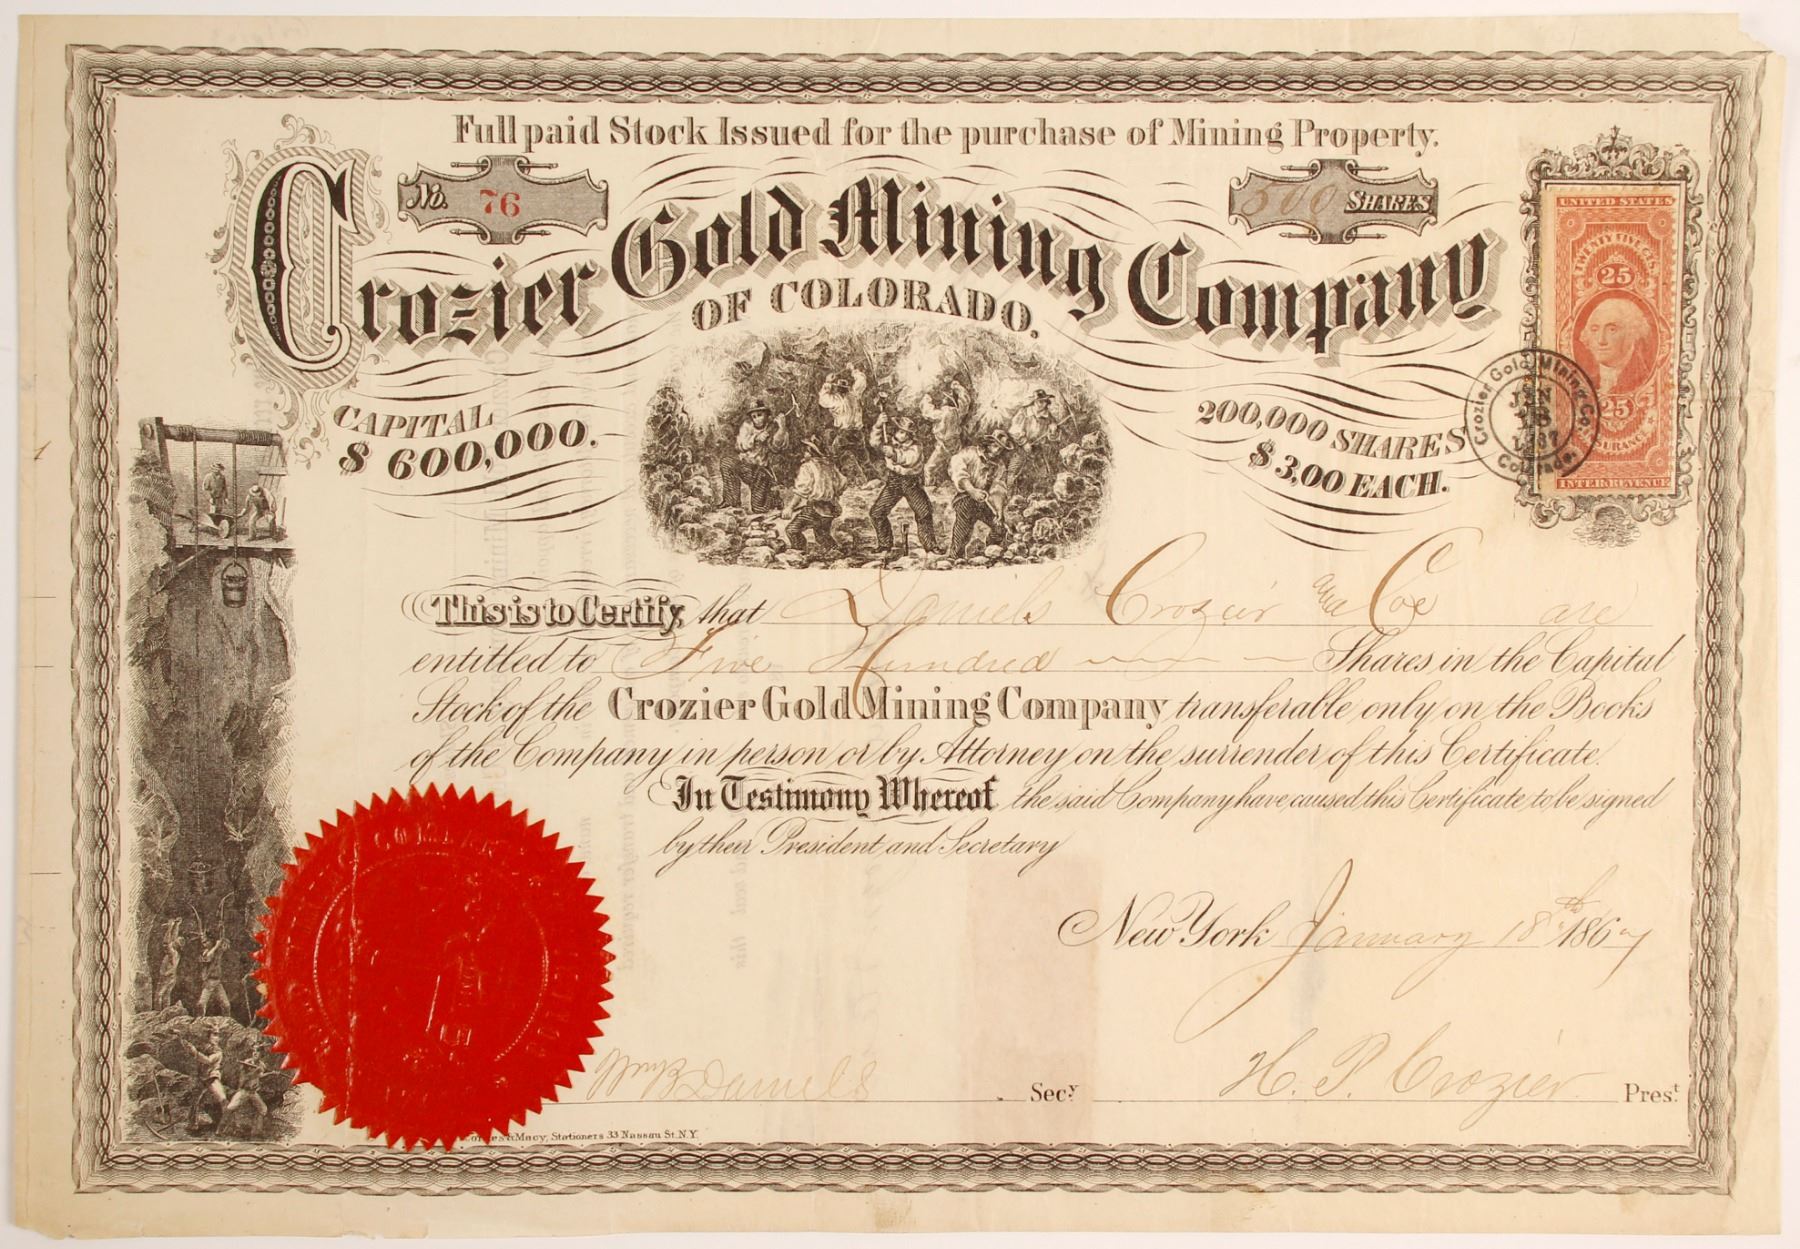 Full paid Stock Issued for the purchase of Mining Property.
No. 76
500 SHARES
Crozier Gold Mining Company
OF COLORADO.
CAPITAL
$ 600,000.
200,000 SHARES
$ 3,00 EACH.
UNITED STATES
TWENTY FIVE CTS.
25
25
INSURANCE
INTER. REVENUE
Crozier Gold Mining Co.
JAN
18
1867
Colorado.
This is to Certify, that Daniels Crozier and Coe are
entitled to Five Hundred Shares in the Capital
Stock of the Crozier Gold Mining Company transferable only on the Books
of the Company in person or by Attorney on the surrender of this Certificate.
In Testimony Whereof the said Company have caused this Certificate to be signed
by their President and Secretary
New York January 18th 1867
Wm B Daniels Secy
H. P. Crozier Prest
& Macy, Stationers 33 Nassau St. N.Y.